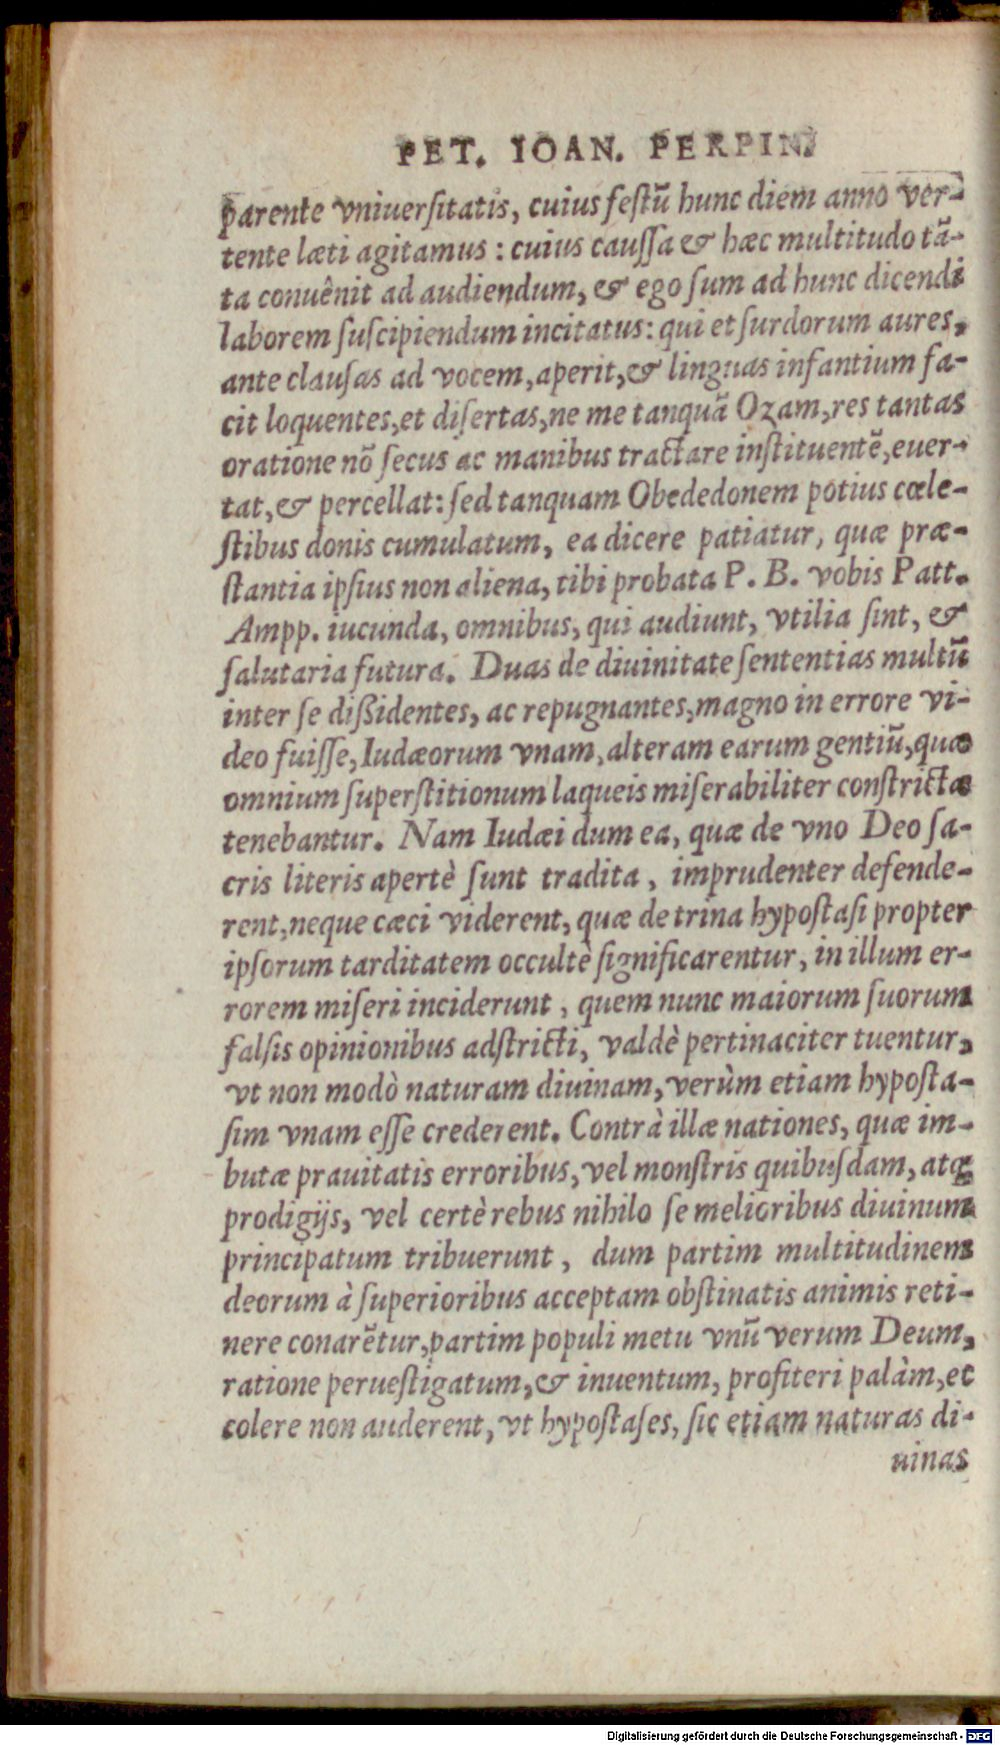 PET. IOAN. PERPIN.
parente vniuersitatis, cuius festū hunc diem anno ver-
tente læti agitamus: cuius caussa & hæc multitudo tā-
ta conuênit ad audiendum, & ego sum ad hunc dicendi
laborem suscipiendum incitatus: qui et surdorum aures,
ante clausas ad vocem, aperit, & linguas infantium fa-
cit loquentes, et disertas, ne me tanquā Ozam, res tantas
oratione nō secus ac manibus tractare instituentē, euer-
tat, & percellat: sed tanquam Obededonem potius cœle-
stibus donis cumulatum, ea dicere patiatur, quæ præ-
stantia ipsius non aliena, tibi probata P. B. vobis Patt.
Ampp. iucunda, omnibus, qui audiunt, vtilia sint, &
salutaria futura. Duas de diuinitate sententias multū
inter se dißidentes, ac repugnantes, magno in errore vi-
deo fuisse, Iudæorum vnam, alteram earum gentiū, quæ
omnium superstitionum laqueis miserabiliter constrictæ
tenebantur. Nam Iudæi dum ea, quæ de vno Deo sa-
cris literis apertè sunt tradita, imprudenter defende-
rent, neque cæci viderent, quæ de trina hypostasi propter
ipsorum tarditatem occultè significarentur, in illum er-
rorem miseri inciderunt, quem nunc maiorum suorum
falsis opinionibus adstricti, valdè pertinaciter tuentur,
vt non modò naturam diuinam, verùm etiam hyposta-
sim vnam esse crederent. Contrà illæ nationes, quæ im-
butæ prauitatis erroribus, vel monstris quibusdam, atq;
prodigijs, vel certè rebus nihilo se melioribus diuinum
principatum tribuerunt, dum partim multitudinem
deorum à superioribus acceptam obstinatis animis reti-
nere conarētur, partim populi metu vnū verum Deum,
ratione peruestigatum, & inuentum, profiteri palàm, et
colere non auderent, vt hypostases, sic etiam naturas di-
uinas
Digitalisierung gefördert durch die Deutsche Forschungsgemeinschaft - DFG